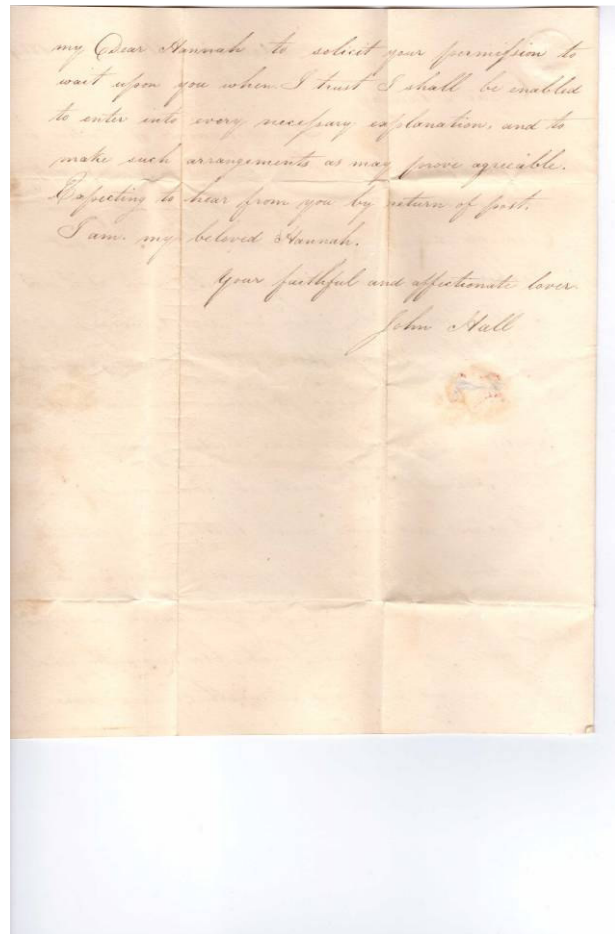 my Dear Hannah to solicit your permission to
wait upon you when I trust I shall be enabled
to enter into every necessary explanation, and to
make such arrangements as may prove agreeable.
Expecting to hear from you by return of post.
I am. my beloved Hannah.
Your faithful and affectionate lover
John Hall